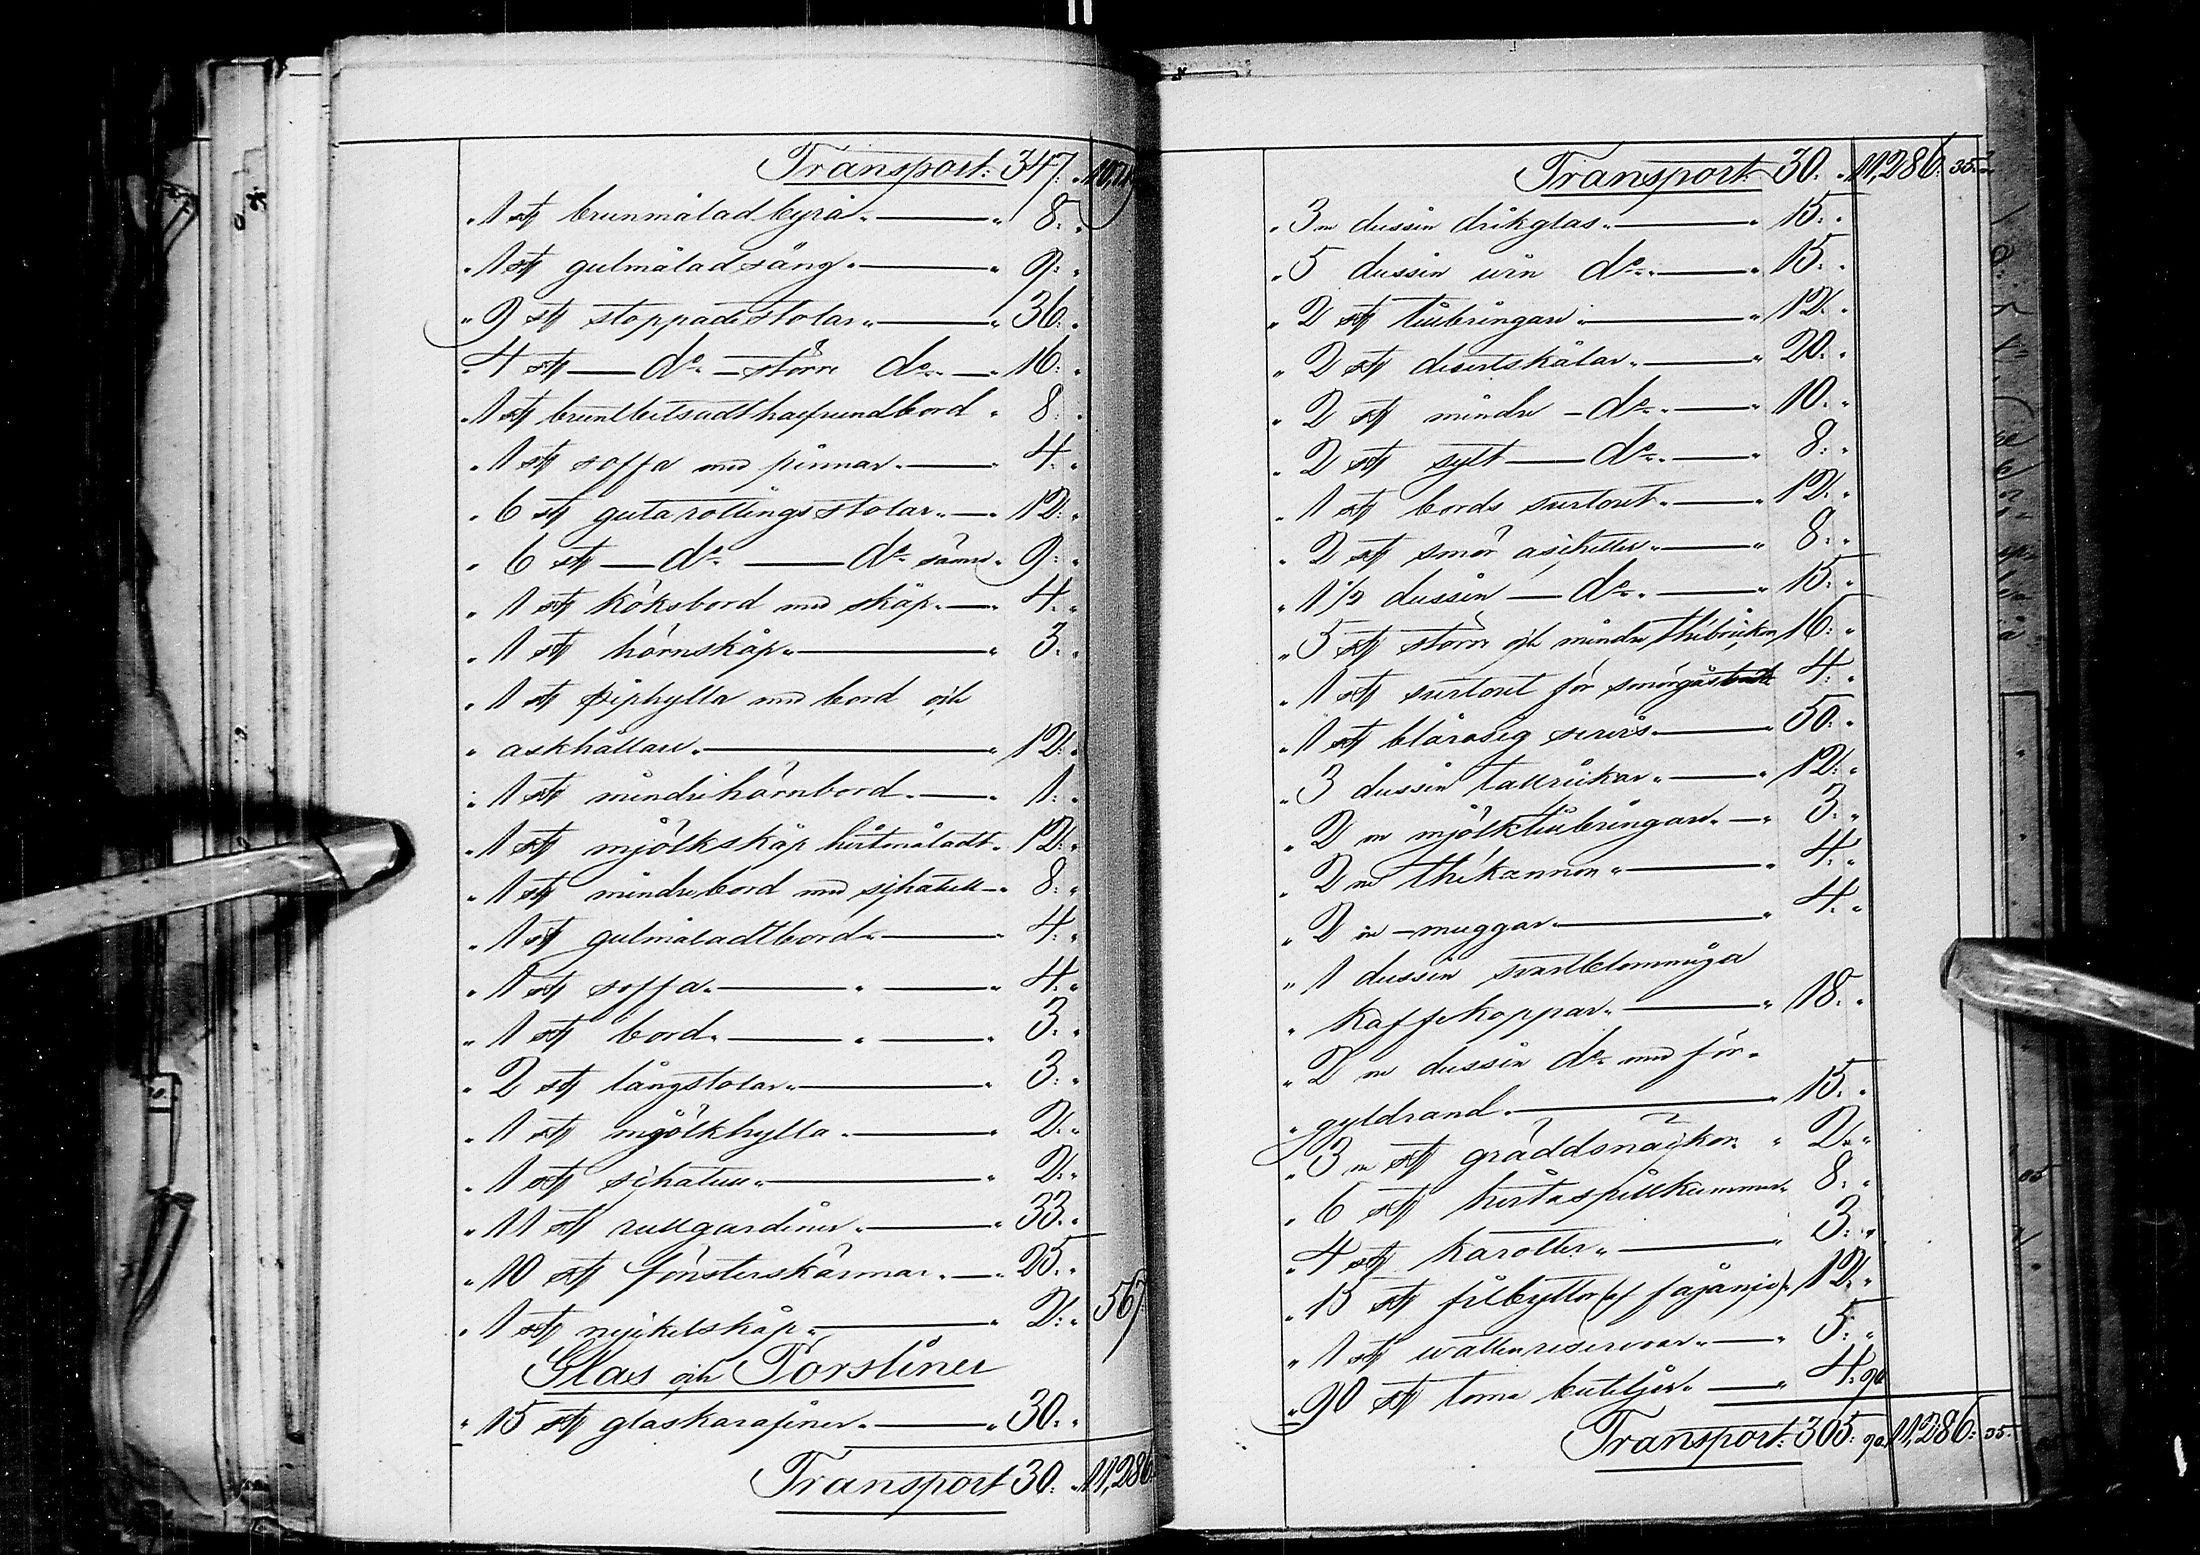 Transport: 347: „ 10,71
„ 1 st brunmålad byrå „ — „ 8: „
„ 1 st gulmålad säng „ — „ 9: „
„ 9 st stoppade stolar „ — „ 36: „
„ 4 st — do — större do „ — „ 16: „
„ 1 st brunbetsadt halfrundbord „ 8: „
„ 1 st soffa med pinnar „ — „ 4: „
„ 6 st gula rottingsstolar „ — „ 12: „
„ 6 st — do — do sämre „ 9: „
„ 1 st köksbord med skåp „ — „ 4: „
„ 1 st hörnskåp „ — „ 3: „
„ 1 st piphylla med bord och
„ askhållare „ — „ 12: „
„ 1 st mindre hörnbord „ — „ 1: „
„ 1 st mjölkskåp hvitmåladt „ 12: „
„ 1 st mindre bord med schatull „ 8: „
„ 1 st gulmåladt bord „ — „ 4: „
„ 1 st soffa „ — „ — „ 4: „
„ 1 st bord „ — „ — „ 3: „
„ 2 st långstolar „ — „ 3: „
„ 1 st mjölkhylla „ — „ 2: „
„ 1 st schatull „ — „ 2: „
„ 11 st rullgardiner „ — „ 33: „
„ 10 st fönsterskärmar „ — „ 25: „
„ 1 st nyckelskåp „ — „ 2: „ 567
Glas och Porsliner
„ 15 st glaskarafiner „ — „ 30: „
Transport 30: „ 11,286
Transport: 30: „ 11,286: 35
„ 3 dussin drikglas „ — „ 15: „
„ 5 dussin vin do „ — „ 15: „
„ 2 st tillbringare „ — „ 12: „
„ 2 st desertskålar „ — „ 20: „
„ 2 st mindre — do „ — „ 10: „
„ 2 st sylt — do „ — „ 8: „
„ 1 st bords surtoret „ — „ 12: „
„ 2 st smör asietter „ — „ 8: „
„ 1 1/2 dussin — do „ — „ 15: „
„ 5 st större och mindre thébrickor 16: „
„ 1 st surtoret för smörgåsbord 4: „
„ 1 st blårosig servis „ — „ 50: „
„ 3 dussin tallrickar „ — „ 12: „
„ 2 mjölktillbringare „ — „ 3: „
„ 2 thékannor „ — „ 4: „
„ 2 — muggar „ — „ 4: „
„ 1 dussin svartblommiga
„ kaffekoppar „ — „ 18: „
„ 2 dussin do med för„
„ gyldrand „ — „ 15: „
„ 3 st gräddsnäckor „ „ 2: „
„ 6 st hvita spillkummar „ 8: „
„ 4 st karotter „ — „ 3: „
„ 15 st filbyttor (af fajans) „ 12: „
„ 1 st vattenreservoar „ — „ 5: „
„ 90 st toma buteljer „ — „ 4: 90
Transport: 305: 90 11,286: 35